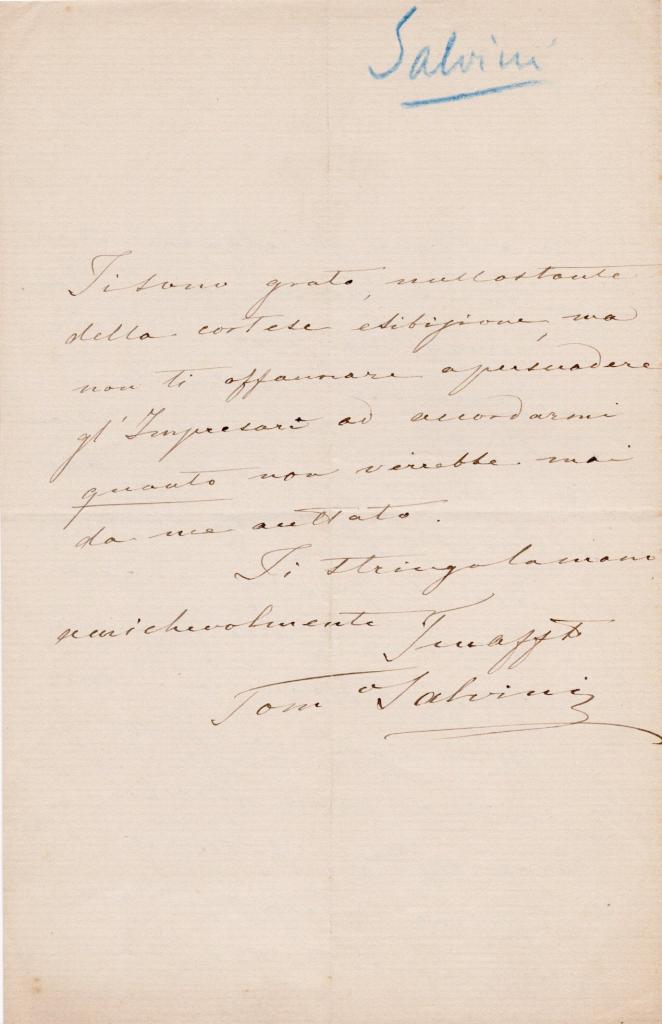 Salvini
Ti sono grato, nullostante
della cortese esibizione, ma
non ti affannare a persuadere
gl'Impresari ad accordarmi
quanto non verrebbe mai
da me
Ti stringo la mano
amichevolmente Tuo aff.
Tom.o Salvini